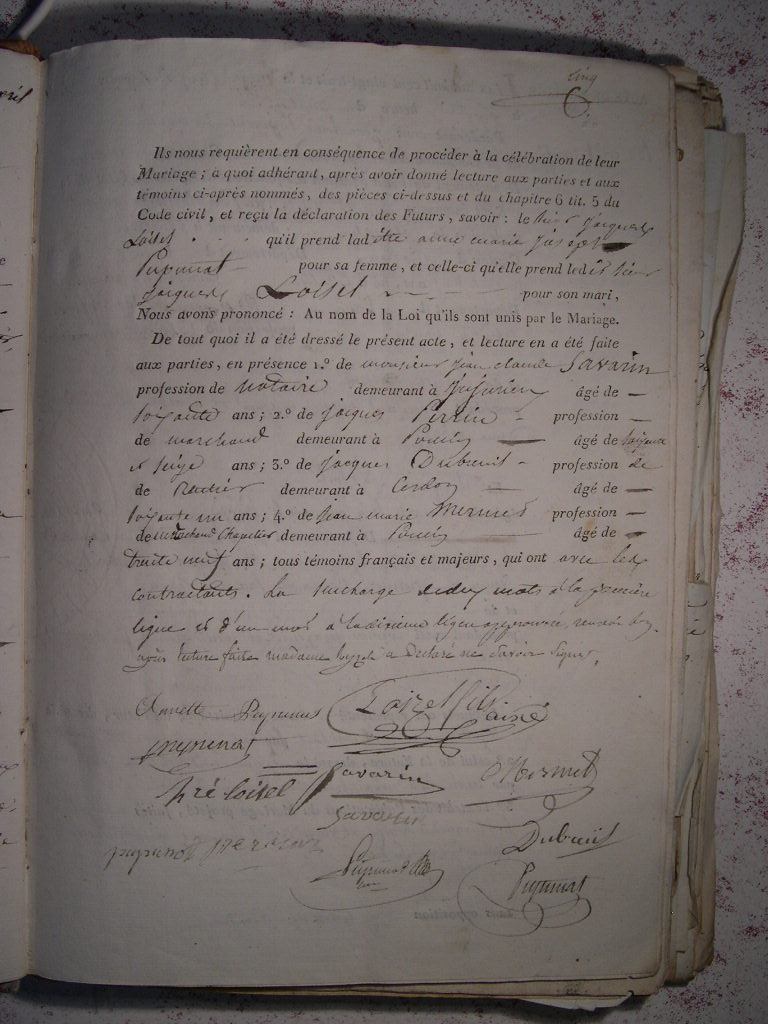 cinq
6
Ils nous requièrent en conséquence de procéder à la célébration de leur
Mariage ; à quoi adhérant, après avoir donné lecture aux parties et aux
témoins ci-après nommés, des pièces ci-dessus et du chapitre 6 tit. 5 du
Code civil, et reçu la déclaration des Futurs, savoir : le Jacques
Loisel qu'il prend ladite anne marie
pour sa femme, et celle-ci qu'elle prend ledit
Jacques Loisel pour son mari,
Nous avons prononcé : Au nom de la Loi qu'ils sont unis par le Mariage.
De tout quoi il a été dressé le présent acte, et lecture en a été faite
aux parties, en présence 1.º de monsieur jean claude Savarin
profession de Notaire demeurant à Jujurieu âgé de
soixante ans ; 2.º de jacques Perrin profession
de marchand demeurant à Poncin âgé de soixante
et seize ans ; 3.º de jacques Dubreuil profession de
de demeurant à Cerdon âgé de
soixante un ans ; 4.º de jean marie Mermet profession
de marchand demeurant à Poncin âgé de
trente neuf ans ; tous témoins français et majeurs, qui ont avec les
contractants. La surcharge de deux mots à la première
ligne et d'un mot à la dixieme ligne approuvée,
après lecture faite madame a déclaré ne savoir signer.
Annette Loisel fils
ainé
hré Loisel Savarin Mermet
Savarin
Dubreuil